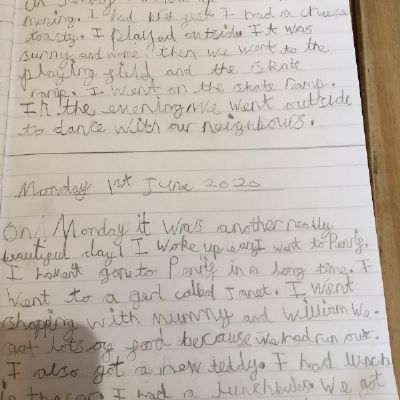 morning. I had I had a cheese
toasty. I played outside. It was
sunny and then we went to the
playing field and the skate
ramp. I went on the skate ramp.
In the evening we went outside
to dance with our neighbours.
Monday 1st June 2020
On Monday it was another really
beautiful day! I woke up I went to
I havent gone to in a long time. I
went to a called Janet. I went
shopping with mummy and William We
got lots of food because we had run out.
I also got a new teddy. I had lunch
in the car. I had a We got